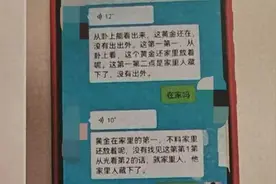 12"
从卦上能看出来，这黄金还在，
没有出出外。这第一第一，从
卦上看，这个黄金还家里放着
呢。这第一第二点是家里人藏
下了，没有出外。
在家吗
10"
黄金在家里的第一，不料家里
还放着呢，没有找见这第第1第
从光看第2的话，就家里人，他
家里人藏下了。